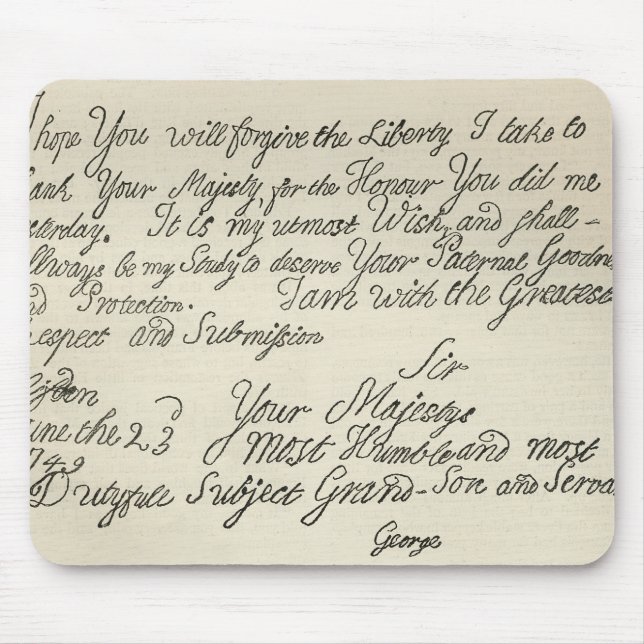 hope You will forgive the Liberty I take to
ank Your Majesty, for the Honour You did me
sterday. It is my utmost Wish, and shall -
llways be my Study to deserve Your Paternal Goodne
nd Protection. I am with the Greatest
espect and Submission
Sir
Your Majestys
une the 23d
Most Humble and most
749
Dutyfull Subject Grand-Son and Serva
George